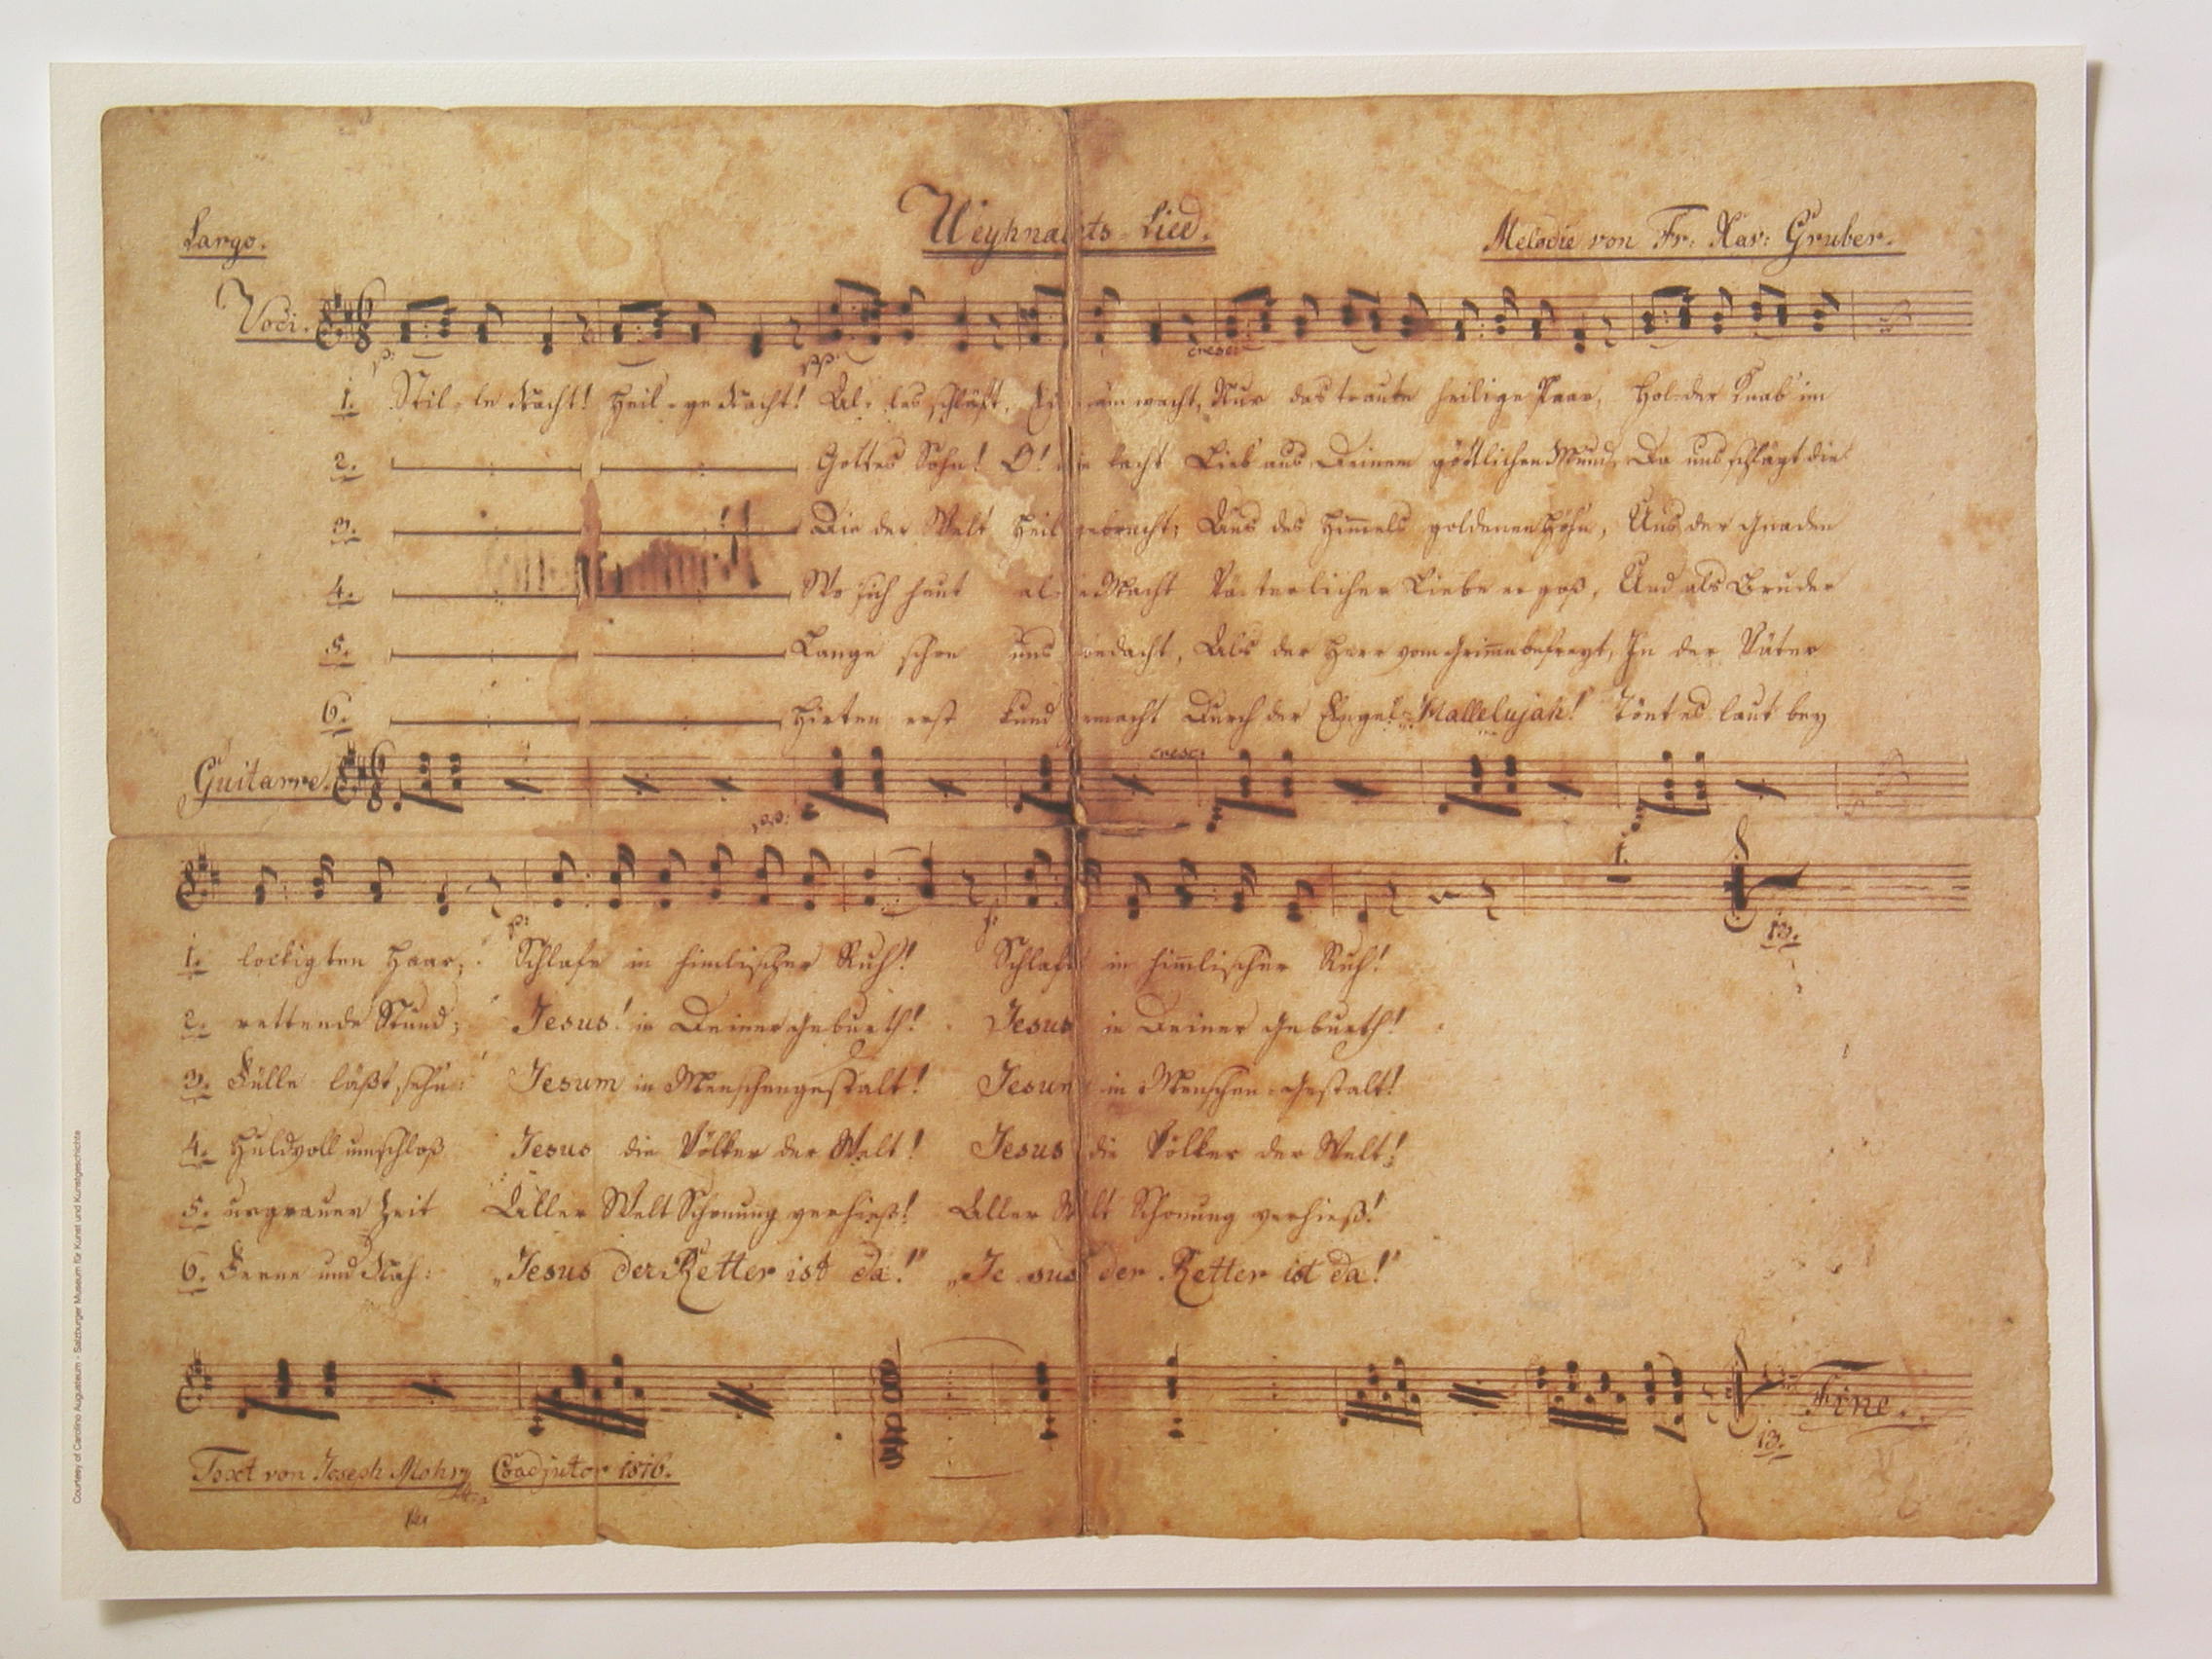 Largo.
Weyhnachts-Lied.
Melodie von Fr: Xav: Gruber.
Voci.
p: pp: cresc:
1. Stil-le Nacht! Heil-ge Nacht! Al-les schläft, Einsam wacht, Nur das traute heilige Paar, Holder Knab' im
2. Gottes Sohn! O! wie lacht Lieb' aus Deinem göttlichen Mund, Da uns schlägt die
3. Die der Welt Heil gebracht; Aus des Him̅els goldenen Höhn, Uns der Gnaden
4. Wo sich heut alle Macht Väterlicher Liebe ergoß, Und als Bruder
5. Lange schon uns bedacht, Als der Herr vom Grim̅e befreyt, In der Väter
6. Hirten erst kund gemacht Durch der Engel Hallelujah! Tönt es laut bey
Guitarre.
pp: cresc:
1.
p: p: 13.
1. lockigten Haar; Schlafe in himlischer Ruh! Schlafe in him̅lischer Ruh!
2. rettende Stund; Jesus! in Deiner Geburth! Jesus in Deiner Geburth!
3. Fülle läßt sehn: Jesum in Menschengestalt! Jesum in Menschen-Gestalt!
4. Huldvoll umschloß Jesus die Völker der Welt! Jesus die Völker der Welt!
5. urgrauer Zeit Aller Welt Schonung verhieß! Aller Welt Schonung verhieß!
6. Ferne und Nah: „Jesus der Retter ist da!" „Jesus der Retter ist da!"
Fine.
13.
Text von Joseph Mohr Coadjutor 1816.
Courtesy of Carolino Augusteum - Salzburger Museum für Kunst und Kunstgeschichte